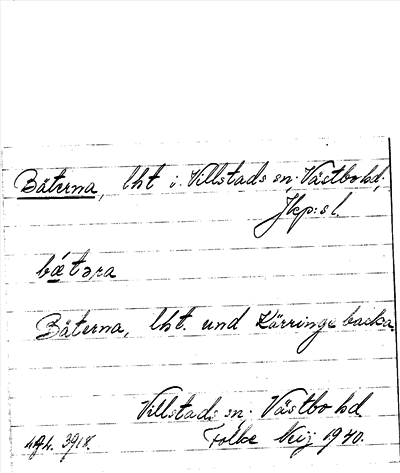 Bäterna, lht i Villstads sn. Västbo hd.
Jkp:s l.
bǽtəra
Bäterna, lht. und Kärringe backa
Villstads sn. Västbo hd
3918. Folke Neij 1940.